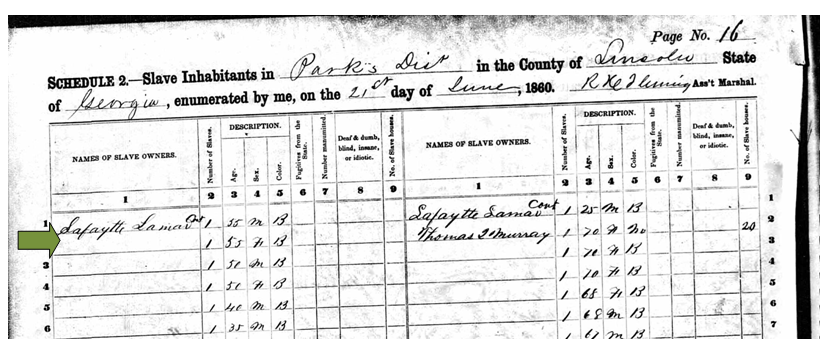 Page No. 16
SCHEDULE 2.—Slave Inhabitants in Park's Dist in the County of Lincoln State
of Georgia, enumerated by me, on the 21st day of June, 1860. R H Fleming Ass't Marshal.
NAMES OF SLAVE OWNERS. Number of Slaves. DESCRIPTION. Age. Sex. Color. Fugitives from the State. Number manumitted. Deaf & dumb, blind, insane, or idiotic. No. of Slave houses. NAMES OF SLAVE OWNERS. Number of Slaves. DESCRIPTION. Age. Sex. Color. Fugitives from the State. Number manumitted. Deaf & dumb, blind, insane, or idiotic. No. of Slave houses.
1 2 3 4 5 6 7 8 9 1 2 3 4 5 6 7 8 9
1 Lafaytte Lamar Cont 1 55 M B Lafaytte Lamar Cont 1 25 M B 1
1 55 F B Thomas Murray 1 70 F 20 2
3 1 50 M B 1 70 F B 3
4 1 50 F B 1 70 F B 4
5 1 40 M B 1 68 F B 5
6 1 35 M B 1 68 M B 6
1 M B 7